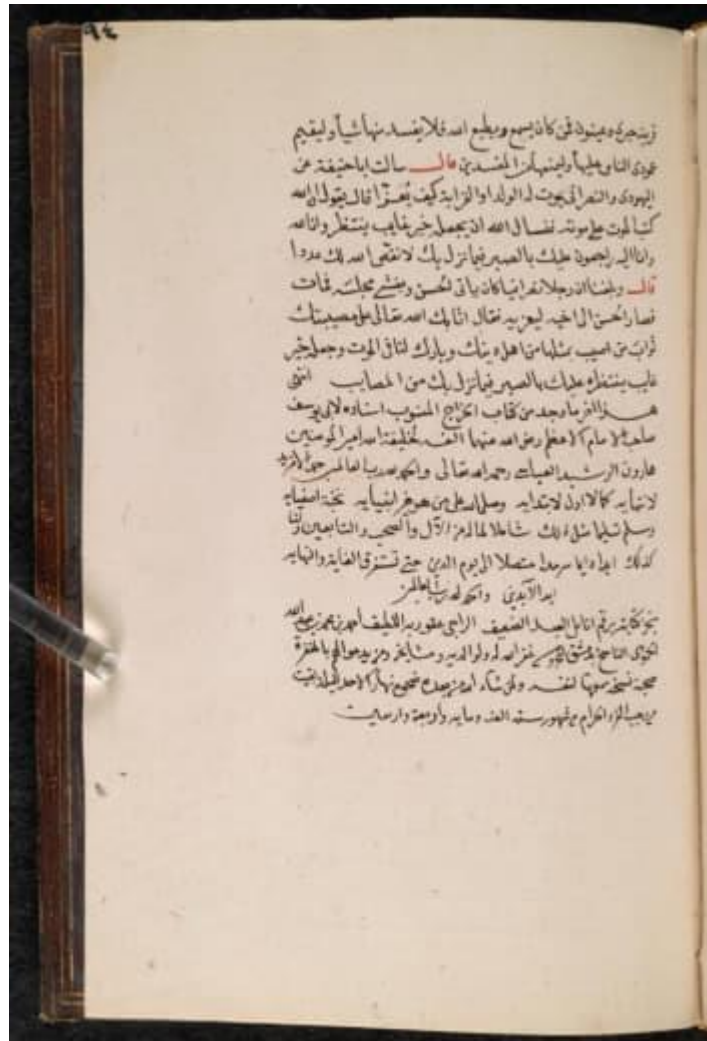 ٩٤
فمن كان يسمع ويطيع الله فلا يفسد منها شيأ وليقيم
الناس عليها وليمنعها من المفسدين قال سالت اباحنيفة عن
اليهودى والنصرانى يموت له الولد او القرابة كيف يعزا قال يقول ان الله
كتب الموت على فنسال الله ان يجعله خير غايب ينتظر وانا لله
وانا اليه راجعون عليك بالصبر فيما نزل بك لا نقص الله لك عددا
قال وبلغنا ان رجلا نصرانيا كان ياتى الحسن ويغشى مجلسه فمات
فصار الحسن الى اخيه ليعزيه فقال اثابك الله تعالى على مصيبتك
ثواب من اصيب بمثلها من اهل دينك وبارك لنا فى الموت وجعله خير
غايب ينتظره عليك بالصبر فيما نزل بك من المصايب انتهى
هذا اخر ما وجد من كتاب الخراج المنسوب اسناده لابى يوسف
صاحب الامام الاعظم رضى الله عنهما الفه لخليفة الله امير المومنين
هارون الرشيد العباسى رحمه الله تعالى والحمد لله رب العالمين
لانهايه كما لا اول لابتدايه وصلى الله على من هو خر انبيايه اصفيايه
وسلم تسليما مثل ذلك شاملا لماله من الآل والصحب والتابعين
كذلك ابدا دايما سرمدا متصلا الى يوم الدين حتى تستغرق الغاية والنهايه
ابد الآبدين والحمد لله رب العالمين
العبد الضعيف الراجى عفو ربه اللطيف احمد بن محمد بن عبد الله
الناسخ بدمشق غفر الله له ولوالديه ومشايخه
نسخه لنفسه ولمن شاء الله من بعده نهار الاحد
من رجب الحرام من شهور سنة الف ومايه واربعة واربعين